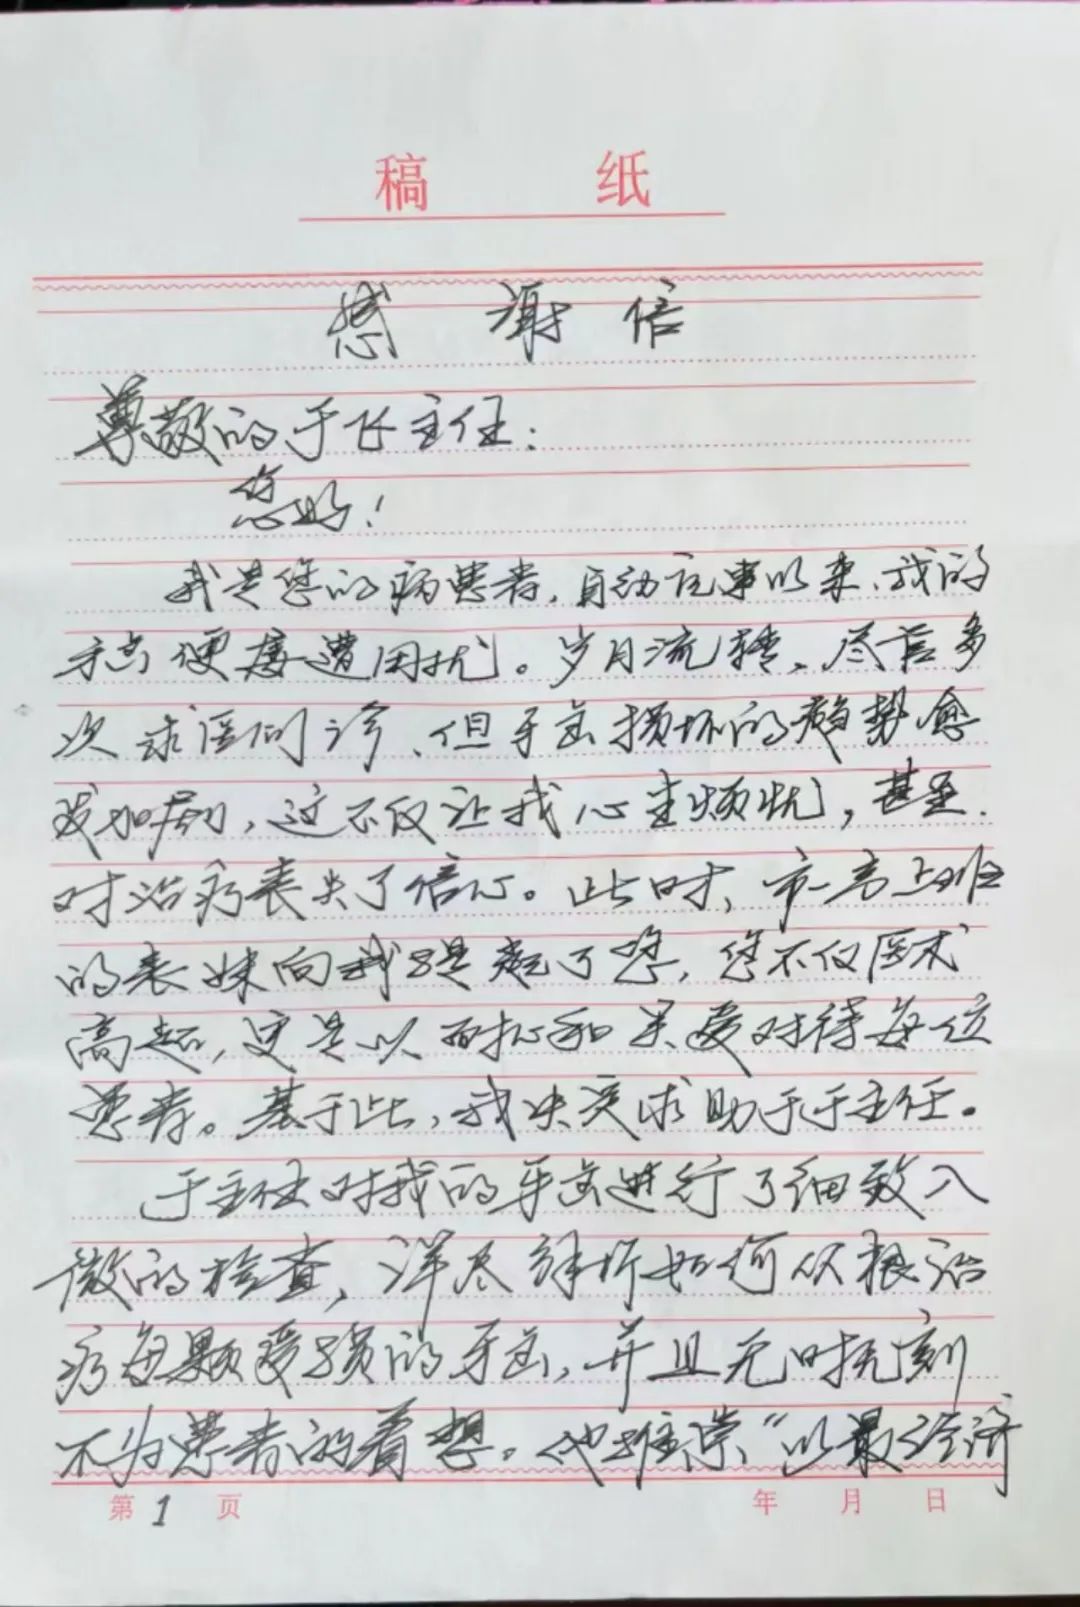 稿 纸
感 谢 信
尊敬的于飞主任：
您好！
我是您的病患者，自幼记事以来、我的
牙齿便屡遭困扰。岁月流转、尽管多
次求医问诊、但牙齿损坏的趋势愈
发加剧，这不仅让我心生烦忧，甚至
对治疗丧失了信心。此时、市一高上班
的表妹向我提起了您，您不仅医术
高超，更是以耐心和关爱对待每位
患者。基于此，我决定求助于于主任。
于主任对我的牙齿进行了细致入
微的检查，详尽解析如何从根治
疗每颗受损的牙齿，并且无时无刻
不为患者的着想。他推崇“以最经济
第1页 年 月 日